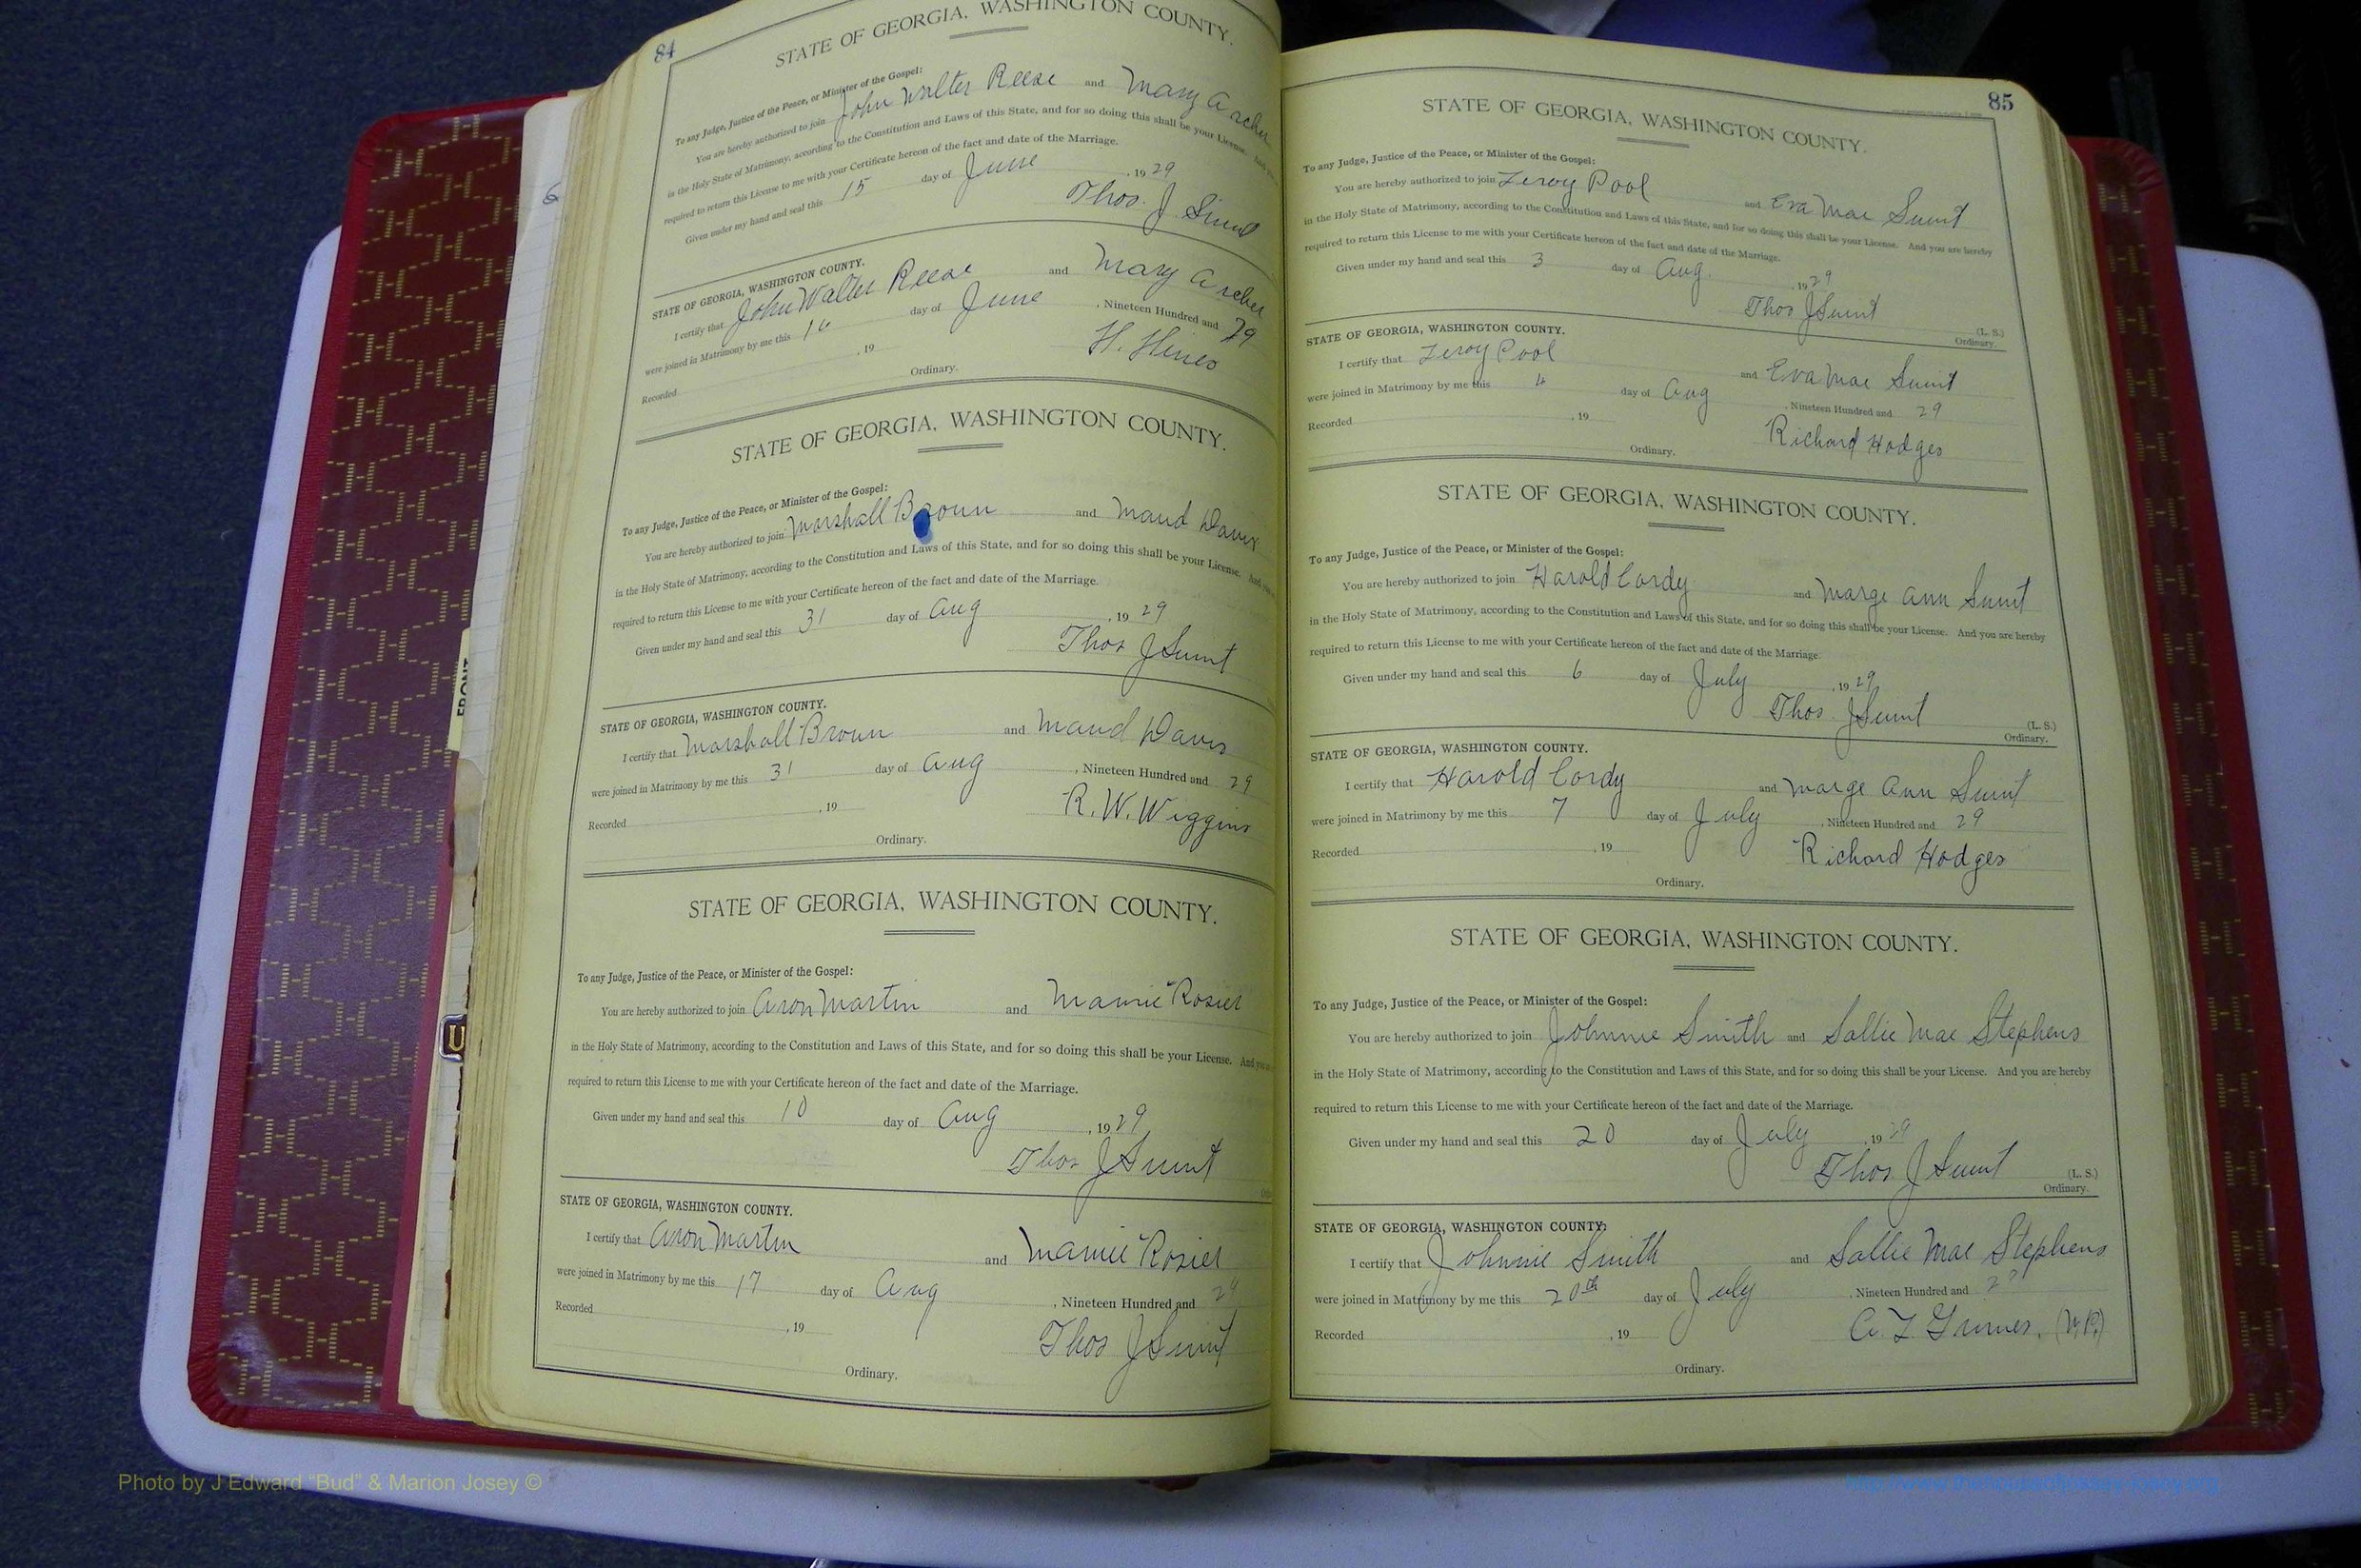 84
STATE OF GEORGIA, WASHINGTON COUNTY.
To any Judge, Justice of the Peace, or Minister of the Gospel:
You are hereby authorized to join John Walter Reese and Mary Archer
in the Holy State of Matrimony, according to the Constitution and Laws of this State, and for so doing this shall be your License. And you
required to return this License to me with your Certificate hereon of the fact and date of the Marriage.
Given under my hand and seal this 15 day of June, 1929
Thos. J. Swint
STATE OF GEORGIA, WASHINGTON COUNTY.
I certify that John Walter Reese and Mary Archer
were joined in Matrimony by me this 16 day of June, Nineteen Hundred and 29
Recorded , 19 H. Hines
Ordinary.
STATE OF GEORGIA, WASHINGTON COUNTY.
To any Judge, Justice of the Peace, or Minister of the Gospel:
You are hereby authorized to join Marshall Broun and Maud Davis
in the Holy State of Matrimony, according to the Constitution and Laws of this State, and for so doing this shall be your License. And
required to return this License to me with your Certificate hereon of the fact and date of the Marriage.
Given under my hand and seal this 31 day of Aug, 1929
Thos J Swint
STATE OF GEORGIA, WASHINGTON COUNTY.
I certify that Marshall Broun and Maud Davis
were joined in Matrimony by me this 31 day of Aug, Nineteen Hundred and 29
Recorded , 19 R. W. Wiggins
Ordinary.
STATE OF GEORGIA, WASHINGTON COUNTY.
To any Judge, Justice of the Peace, or Minister of the Gospel:
You are hereby authorized to join Aron Martin and Mamie Rosier
in the Holy State of Matrimony, according to the Constitution and Laws of this State, and for so doing this shall be your License. And
required to return this License to me with your Certificate hereon of the fact and date of the Marriage.
Given under my hand and seal this 10 day of Aug, 1929
Thos J Swint
STATE OF GEORGIA, WASHINGTON COUNTY.
I certify that Aron Martin and Mamie Rosier
were joined in Matrimony by me this 17 day of Aug, Nineteen Hundred and 29
Recorded , 19 Thos J Swint
Ordinary.
85
STATE OF GEORGIA, WASHINGTON COUNTY.
To any Judge, Justice of the Peace, or Minister of the Gospel:
You are hereby authorized to join Leroy Pool and Eva Mae Swint
in the Holy State of Matrimony, according to the Constitution and Laws of this State, and for so doing this shall be your License. And you are hereby
required to return this License to me with your Certificate hereon of the fact and date of the Marriage.
Given under my hand and seal this 3 day of Aug., 1929
Thos J Swint (L. S.)
Ordinary.
STATE OF GEORGIA, WASHINGTON COUNTY.
I certify that Leroy Pool and Eva Mae Swint
were joined in Matrimony by me this 4 day of Aug, Nineteen Hundred and 29
Recorded , 19 Richard Hodges
Ordinary.
STATE OF GEORGIA, WASHINGTON COUNTY.
To any Judge, Justice of the Peace, or Minister of the Gospel:
You are hereby authorized to join Harold Cordy and Marge Ann Swint
in the Holy State of Matrimony, according to the Constitution and Laws of this State, and for so doing this shall be your License. And you are hereby
required to return this License to me with your Certificate hereon of the fact and date of the Marriage.
Given under my hand and seal this 6 day of July, 1929
Thos. J Swint (L. S.)
Ordinary.
STATE OF GEORGIA, WASHINGTON COUNTY.
I certify that Harold Cordy and Marge Ann Swint
were joined in Matrimony by me this 7 day of July, Nineteen Hundred and 29
Recorded , 19 Richard Hodges
Ordinary.
STATE OF GEORGIA, WASHINGTON COUNTY.
To any Judge, Justice of the Peace, or Minister of the Gospel:
You are hereby authorized to join Johnnie Smith and Sallie Mae Stephens
in the Holy State of Matrimony, according to the Constitution and Laws of this State, and for so doing this shall be your License. And you are hereby
required to return this License to me with your Certificate hereon of the fact and date of the Marriage.
Given under my hand and seal this 20 day of July, 1929
Thos. J Swint (L. S.)
Ordinary.
STATE OF GEORGIA, WASHINGTON COUNTY.
I certify that Johnnie Smith and Sallie Mae Stephens
were joined in Matrimony by me this 20th day of July, Nineteen Hundred and 29
Recorded , 19
Ordinary.
FRONT
Photo by J Edward “Bud” & Marion Josey ©